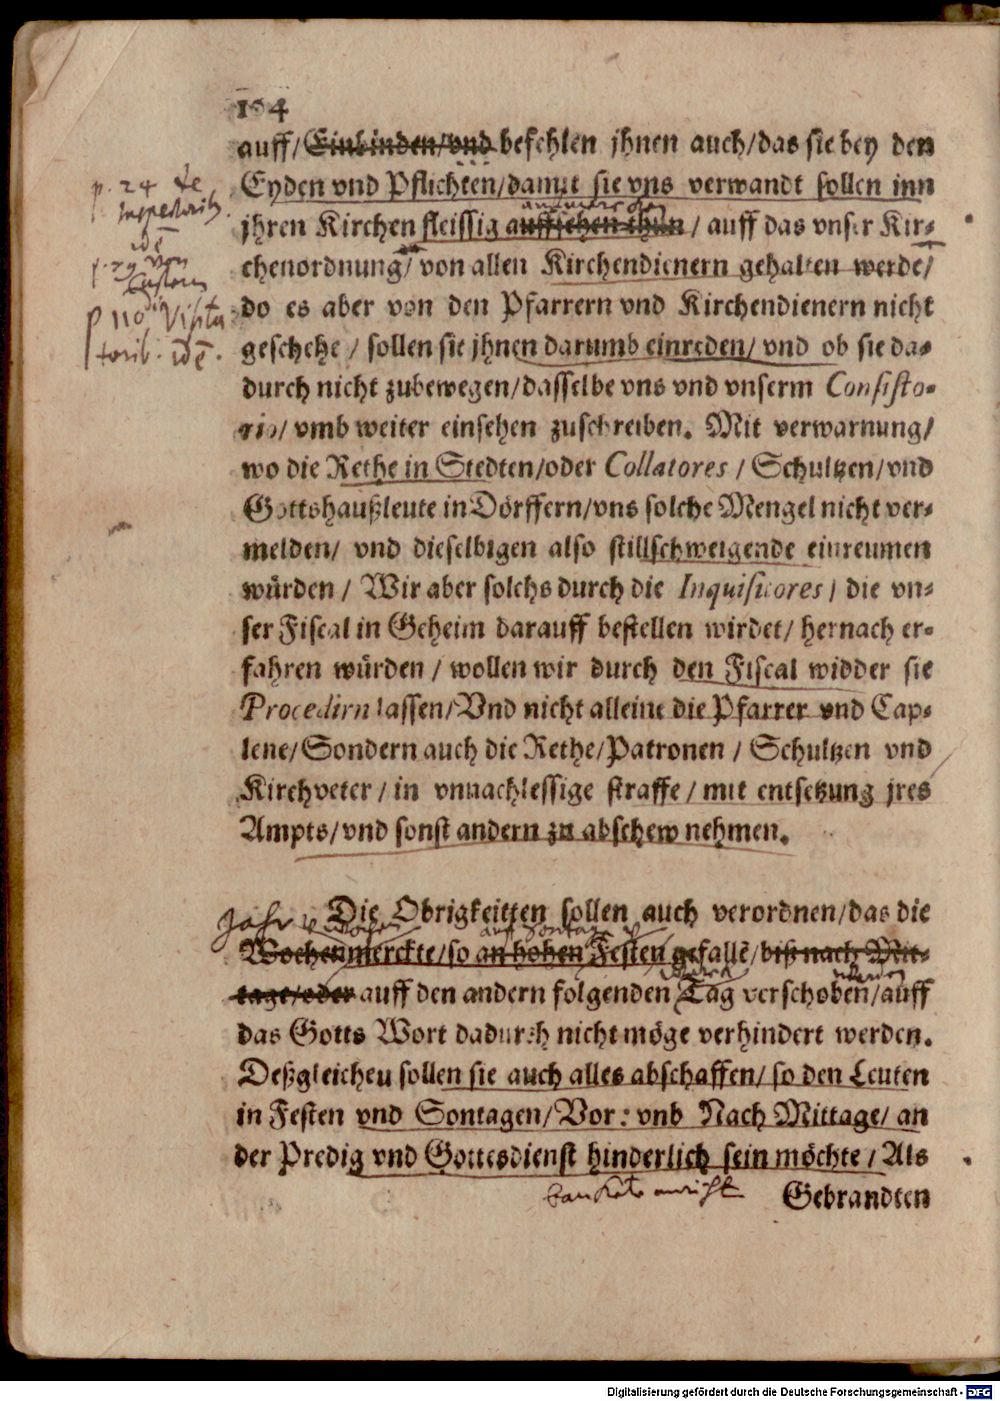 104
auff/ Einbinden/vnd befehlen jhnen auch/das sie bey den
Eyden vnd Pflichten/damit sie vns verwandt sollen inn
jhren Kirchen fleissig auffsehen thun / auff das vnser Kir-
chenordnung/ von allen Kirchendienern gehalten werde/
do es aber von den Pfarrern vnd Kirchendienern nicht
geschehe / sollen sie jhnen darumb einreden/ vnd ob sie da-
durch nicht zubewegen/dasselbe vns vnd vnserm Consisto-
rio/ vmb weiter einsehen zuschreiben. Mit verwarnung/
wo die Rethe in Stedten/oder Collatores / Schultzen/vnd
Gottshaußleute in Dörffern/vns solche Mengel nicht ver-
melden/ vnd dieselbigen also stillschweigende einreumen
würden / Wir aber solchs durch die Inquisitores / die vn-
ser Fiscal in Geheim darauff bestellen wirdet/ hernach er-
fahren würden / wollen wir durch den Fiscal widder sie
Procedirn lassen/ Vnd nicht alleine die Pfarrer vnd Cap-
lene/ Sondern auch die Rethe/Patronen / Schultzen vnd
Kirchveter / in vnnachlessige straffe / mit entsetzung jres
Ampts/vnd sonst andern zu abschew nehmen.
Die Obrigkeitten sollen auch verordnen/das die
Jahr
Wochenmerckte/so an hohen Festen gefallē/biß nach Mit-
tage/oder auff den andern folgenden Tag verschoben/auff
das Gotts Wort dadurch nicht möge verhindert werden.
Deßgleichen sollen sie auch alles abschaffen/ so den Leuten
in Festen vnd Sontagen/Vor: vnd Nach Mittage/ an
der Predig vnd Gottesdienst hinderlich sein möchte / Als
Gebrandten
p. 24 de
Inspectorib.
p. 29 von
p 110 Visita
torib. idē.
Digitalisierung gefördert durch die Deutsche Forschungsgemeinschaft - DFG